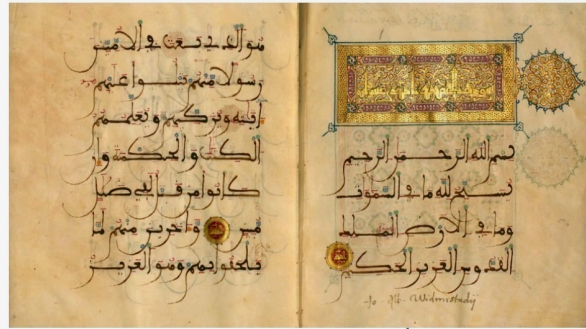 بسم الله الرحمن الرحيم
يسبح لله ما في السموت
وما في الارض الملك
القدوس العزيز الحكيم
Alb. Widmestadij
هو الذي بعث في الامين
رسولا منهم يتلوا عليهم
ايته ويزكيهم ويعلمهم
الكتب والحكمة وان
كانوا من قبل لفي ضلل
مبين واخرين منهم لما
يلحقوا بهم وهو العزيز